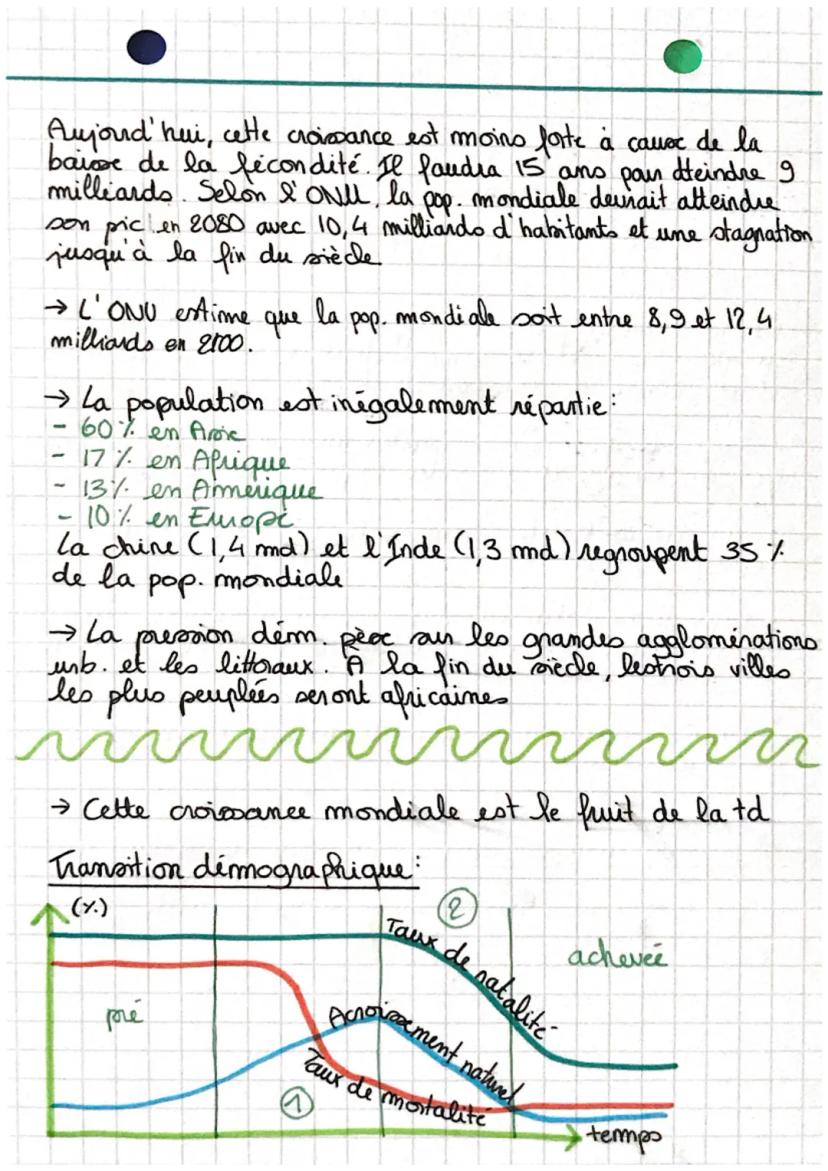 Aujourd'hui, cette croissance est moins forte à cause de la
baisse de la fécondité. Il faudra 15 ans pour atteindre 9
milliards. Selon l'ONU, la pop. mondiale devrait atteindre
son pic en 2080 avec 10,4 milliards d'habitants et une stagnation
jusqu'à la fin du siècle
→ L'ONU estime que la pop. mondiale soit entre 8,9 et 12,4
milliards en 2100.
→ La population est inégalement répartie :
- 60 % en Asie
- 17 % en Afrique
- 13 % en Amérique
- 10 % en Europe
La chine (1,4 md) et l'Inde (1,3 md) regroupent 35 %
de la pop. mondiale
→ La pression dém. pèse sur les grandes agglomérations
urb. et les littoraux. A la fin du siècle, les trois villes
les plus peuplées seront africaines
→ Cette croissance mondiale est le fruit de la td
Transition démographique :
(%)
②
Taux de natalité
achevée
pré
Acroissement naturel
Taux de mortalité
①
temps